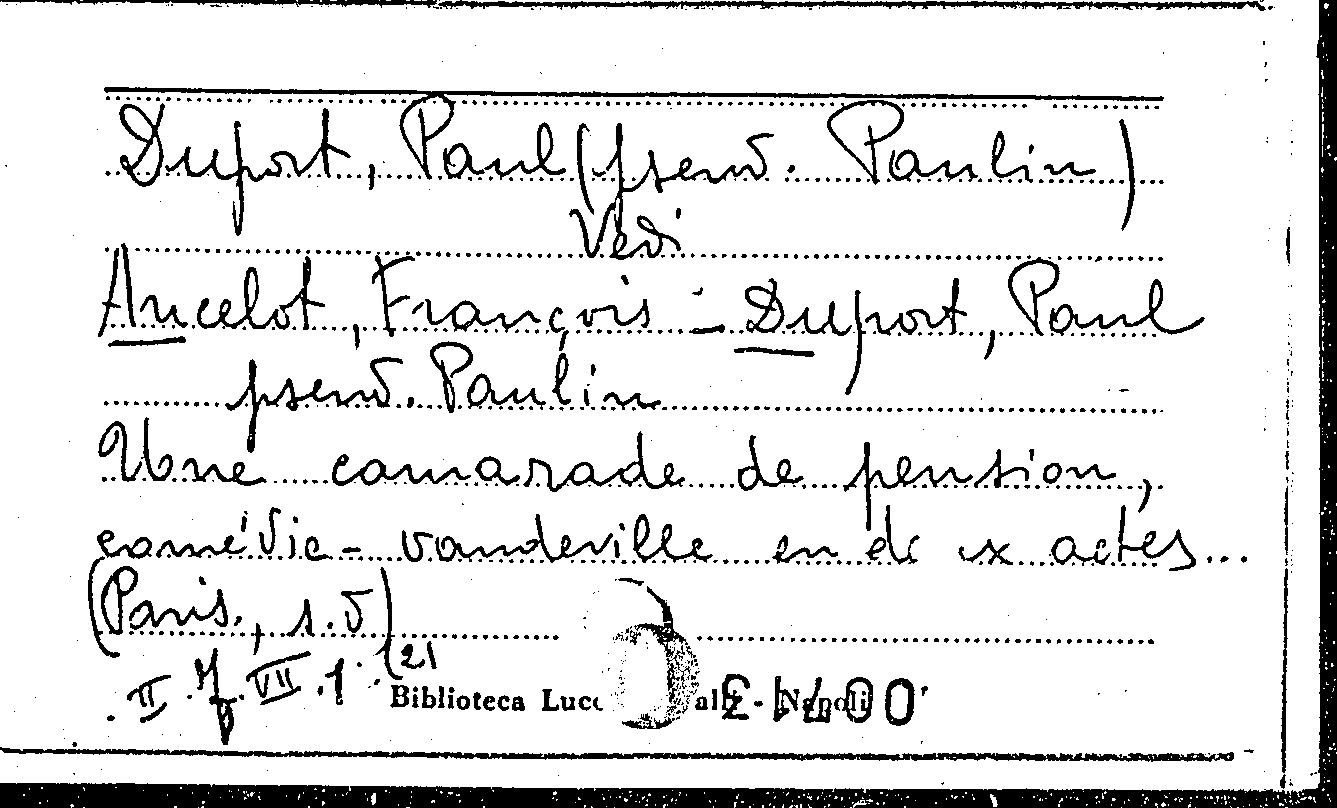 Duport, Paul (pseud. Paulin)
Vedi
Ancelot, François - Duport, Paul
pseud. Paulin
Une camarade de pension,
comédie-vaudeville en de ux actes...
(Paris., s.d)
II. VII. 1. (21
Biblioteca Lucc alli - Napoli